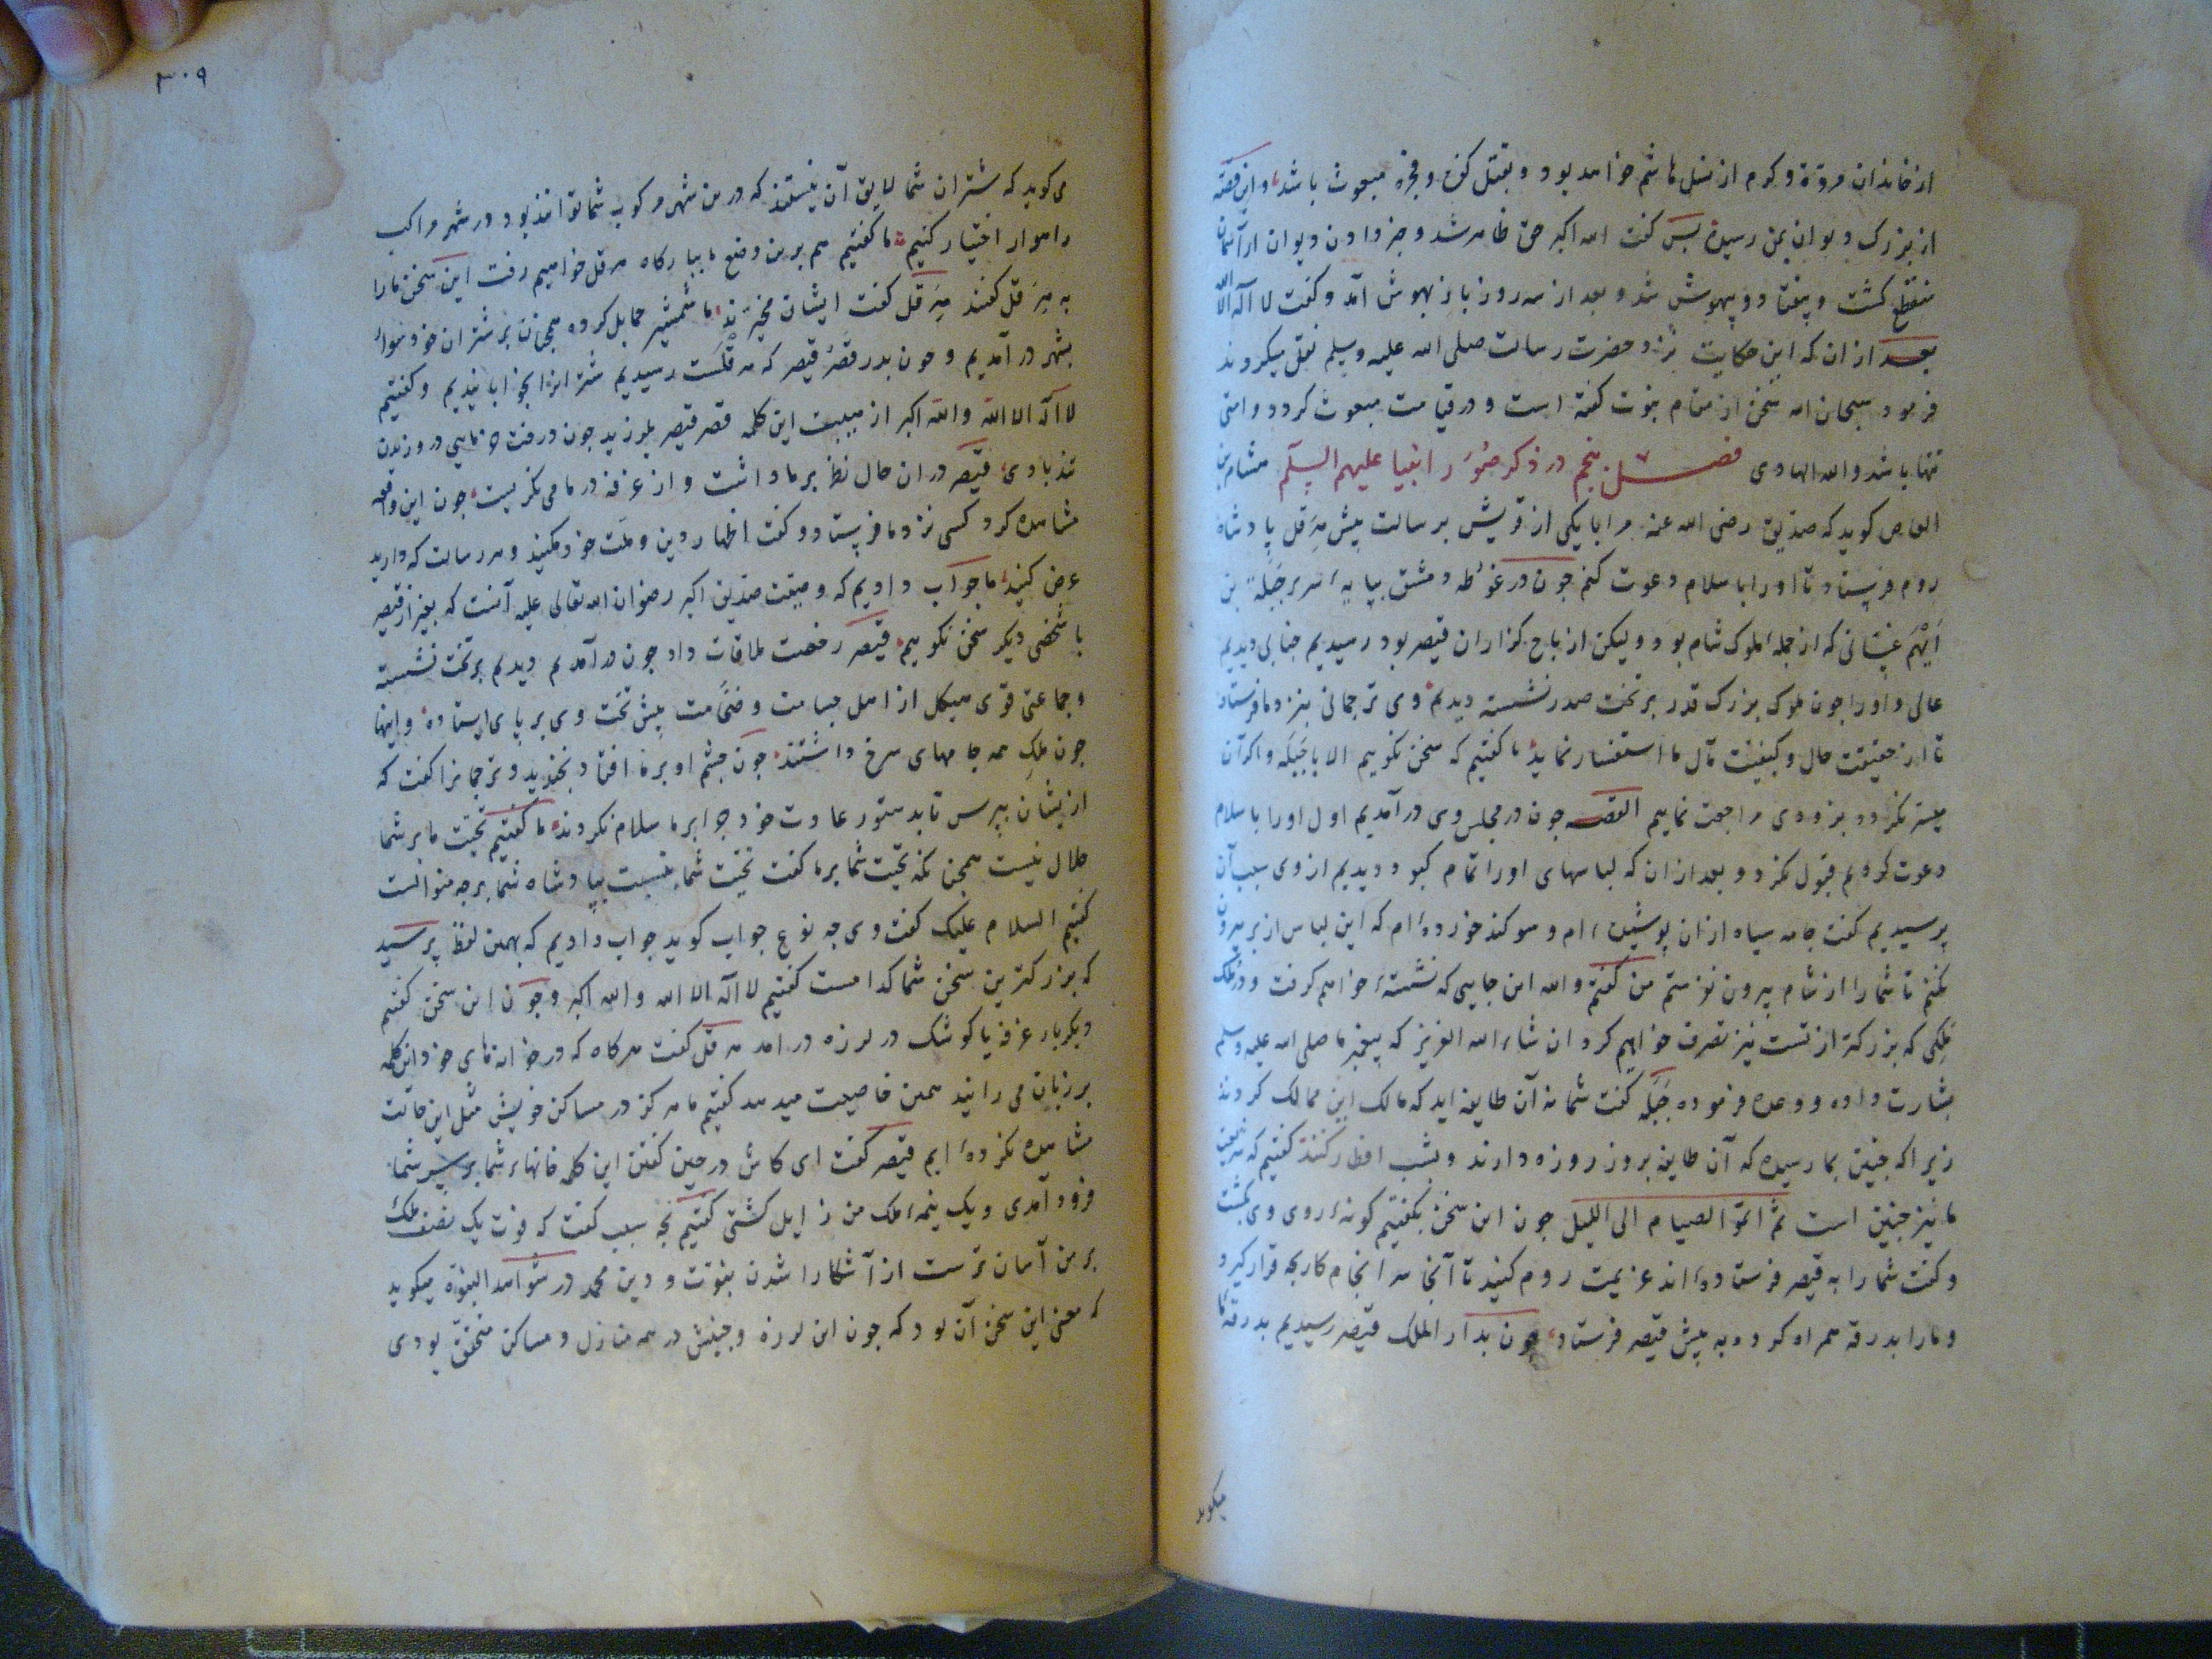 از خاندان مروّة و کرم از نسل هاشم خواهد بود و بقتل کفره و فجره مبعوث باشد و این قصّه
از بزرک دیوان بمن رسیده پس کفت الله اکبر حق ظاهر شد و خبر دادن دیوان از آسمان
منقطع کشت و بیفتاد و بیهوش شد و بعد از سه روز باز بهوش آمد و کفت لا اله الا الله
بعد از ان که این حکایت نزد حضرت رسالت صلی الله علیه وسلم نقل میکردند
فرمود سبحان الله سخن از مقام نبوّت کفته است و در قیامت مبعوث کردد و امتی
تنها باشد والله الهادی فصل پنجم در ذکر صُوَر انبیا علیهم السلام هشام بن
العاص کوید که صدّیق رضی الله عنه مرا با یکی از قریش برسالت پیش هِرَقل پادشاه
روم فرستاد تا او را باسلام دعوت کنم جون در غُوطه دمشق بپایه سریر جَبَلَة بن
اَیْهَم غسّانی که از جمله ملوک شام بود و لیکن از باج کزاران قیصر بود رسیدیم جنابی دیدیم
عالی و او را جون ملوک بزرک قدر بر تخت صدر نشسته دیدیم وی ترجمانی بنزد ما فرستاد
تا از حقیقت حال و کیفیت مآل ما استفسار نماید ما کفتیم که سخن نکوییم الا با جَبَله و اکر آن
میسّر نکردد بزودی مراجعت نماییم القصه جون در مجلس وی درآمدیم اول او را باسلام
دعوت کردیم قبول نکرد و بعد از ان که لباسهای او را تمام کبود دیدیم از وی سبب آن
پرسیدیم کفت جامه سیاه از ان پوشیده ام و سوکند خورده ام که این لباس از بر بیرون
نکنم تا شما را از شام بیرون نفرستم من کفتم والله این جایی که نشسته خواهیم کرفت و در ملک
مَلِکی که بزرکتر از تست نیز تصرف خواهیم کرد ان شاء الله العزیز که پیغمبر ما صلی الله علیه وسلم
بشارت داده و وعده فرموده جَبَله کفت شما نه آن طایفه اید که مالک این ممالک کردند
زیراکه جنین بما رسیده که آن طایفه بروز روزه دارند و بشب افطار کنند کفتیم که شریعت
ما نیز جنین است ثم اتموا الصیام الی اللیل جون این سخن بکفتیم کونه روی وی بکشت
و کفت شما را به قیصر فرستاده اند عزیمت روم کنید تا آنجا سرانجام کار بجه قرار کیرد
و ما را بدرقه همراه کرده به پیش قیصر فرستاد جون بدار الملک قیصر رسیدیم بدرقه ما
میکوید
٣٠٩
می کوید که شتران شما لایق آن نیستند که درین شهر مرکوب شما توانند بود در شهر مراکب
راهوار اختیار کنیم ما کفتیم هم برین وضع ببارکاه هرقل خواهیم رفت این سخن ما را
به هِرَقل کفتند هِرَقل کفت ایشان مخیّرند ما شمشیر حمایل کرده همجنان بر شتران خود سوار
بشهر درآمدیم و جون بدر قصر قیصر که هرقلست رسیدیم شتران را بخوابانیدیم و کفتیم
لا اله الا الله والله اکبر از هیبت این کلمه قصر قیصر بلرزید جون درخت خرمایی در وزیدن
تندبادی قیصر در ان حال نظر بر ما داشت و از غرفه در ما می نکریست جون این واقعه
مشاهده کرد کسی نزد ما فرستاد و کفت اظهار دین و ملّت خود مکنید و هر رسالت که دارید
عرض کنید ما جواب دادیم که وصیّت صدّیق اکبر رضوان الله تعالی علیه آنست که بغیر از قیصر
با شخصی دیکر سخن نکوییم قیصر رخصت ملاقات داد جون درآمدیم دیدیم بر تخت نشسته
و جماعتی قوی هیکل از اهل جسامت و ضخامت پیش تخت وی بر پای ایستاده و اینها
جون ملک همه جامهای سرخ داشتند جون جشم او بر ما افتاد بخندید و ترجمان را کفت که
ازیشان بپرس تا بدستور عادت خود جرا بر ما سلام نکردند ما کفتیم تحیّت ما بر شما
حلال نیست همجنانکه تحیّت شما بر ما کفت تحیّت شما نسبت بپادشاه شما برجه منوالست
کفتیم السلام علیک کفت وی جه نوع جواب کوید جواب دادیم که بهمین لفظ پرسید
که بزرکترین سخن شما کدامست کفتیم لا اله الا الله والله اکبر و جون این سخن کفتیم
دیکر بار غرفه یا کوشک در لرزه درآمد هرقل کفت هرکاه که در خانهای خود این کلمه
بر زبان می رانید همین خاصیت میدهد کفتیم ما هرکز در مساکن خویش مثل این حالت
مشاهده نکرده ایم قیصر کفت ای کاش در حین کفتن این کلمه خانهاء شما بر سر شما
فرود آمدی و یک نیمه ملک من زایل کشتی کفتیم بجه سبب کفت که فوت یک نصف ملک
بر من آسان ترست از آشکارا شدن نبوّت و دین محمد در شواهد النبوّة میکوید
که معنی این سخن آن بود که جون این لرزه و جنبش در همه منازل و مساکن متحقّق بودی